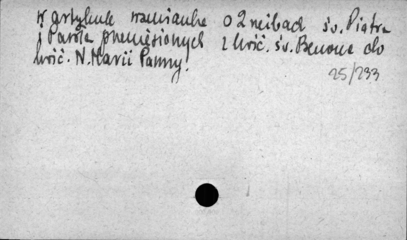 W artykule wzmianka o 2 neibach św. Piotra
i Pawła przeniesionych z kośc. św. Benona do
kośc. N. Marii Panny.
25/233